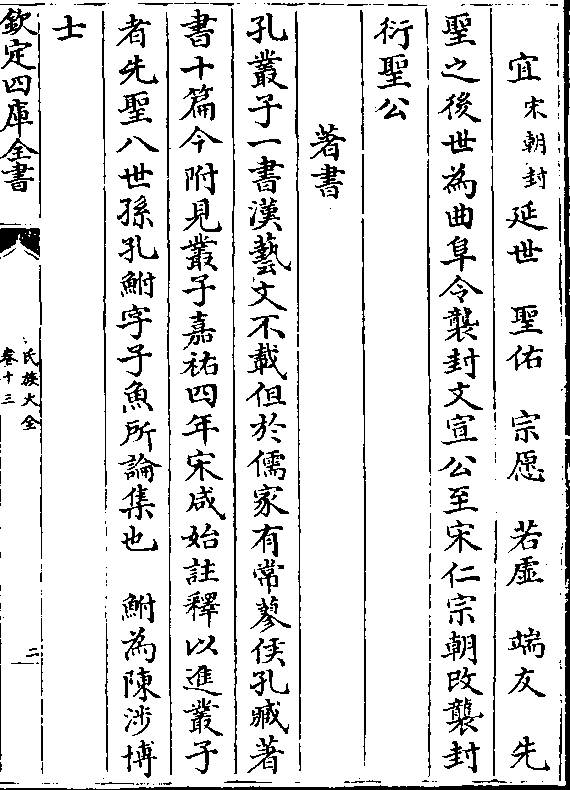 宜宋朝封延世　聖佑　宗愿　若虛　端友　先
聖之後世為曲阜令襲封文宣公至宋仁宗朝改襲封
衍聖公
著書
孔叢子一書漢藝文不載但於儒家有常蓼侯孔臧著
書十篇今附見叢子嘉祐四年宋咸始註釋以進叢子
者先聖八世孫孔鮒字子魚所論集也　鮒為陳涉博
士
欽定四庫全書
氏族大全
卷十三
二